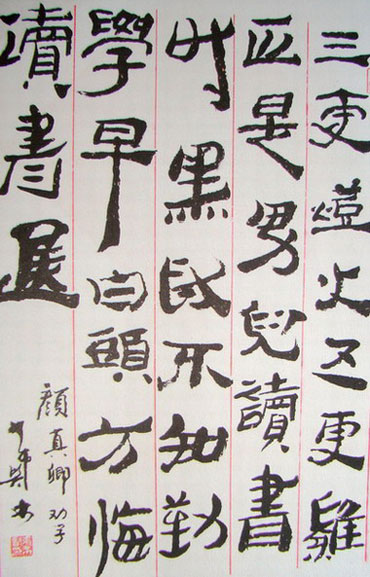 三更燈火五更雞
正是男兒讀書
时黑发不知勤
學早白頭方悔
讀書遲
顔真卿